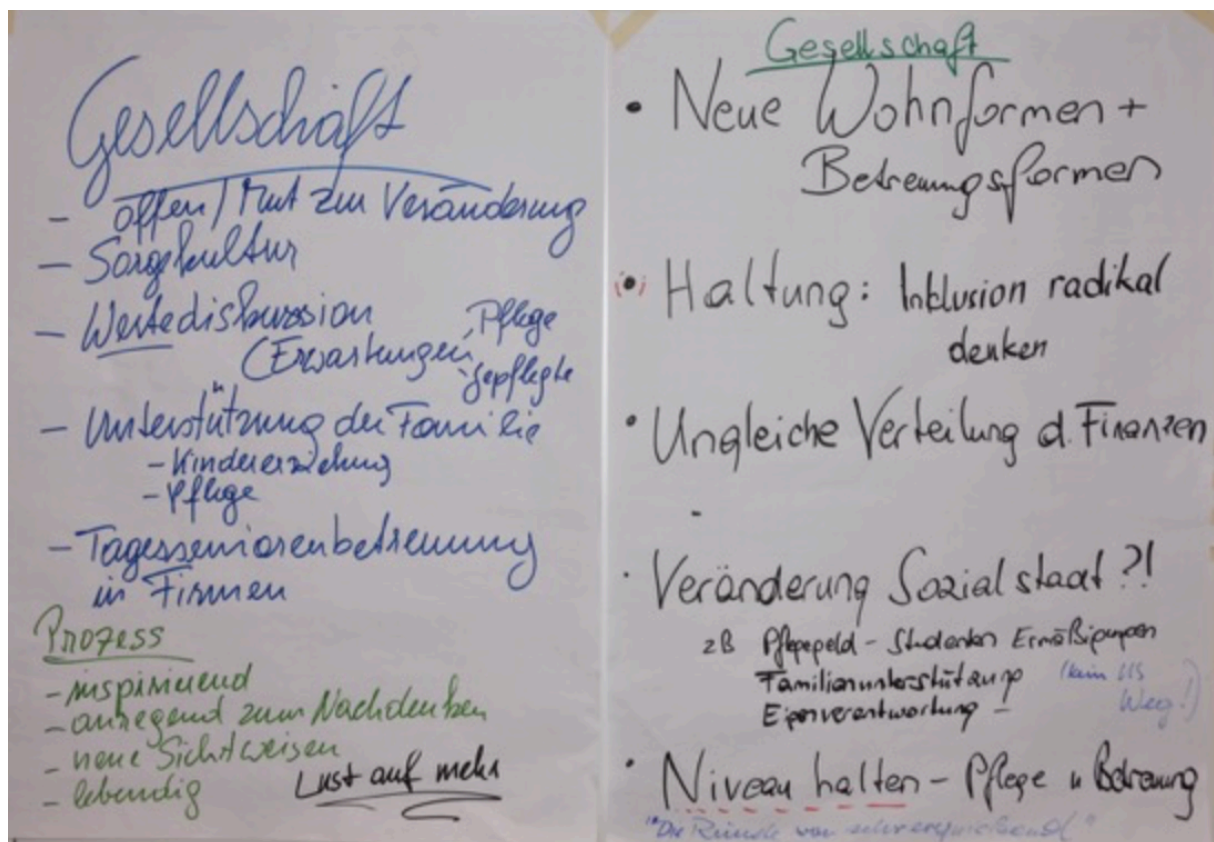 Gesellschaft
- offen / Mut zur Veränderung
- Sorgekultur
- Wertediskussion
(Erwartungen Pflege
Gepflegte
- Unterstützung der Familie
- Kindererziehung
- Pflege
- Tagesseniorenbetreuung
in Firmen
Prozess
- inspirierend
- anregend zum Nachdenken
- neue Sichtweisen
- lebendig
Lust auf mehr
Gesellschaft
• Neue Wohnformen +
Betreuungsformen
(•) Haltung: Inklusion radikal
denken
• Ungleiche Verteilung d. Finanzen
-
• Veränderung Sozialstaat ?!
zB Pflegegeld - Studenten Ermäßigungen
Familienunterstützung (kein US
Eigenverantwortung - Weg!)
• Niveau halten - Pflege u Betreuung
"Die Runde war sehr "